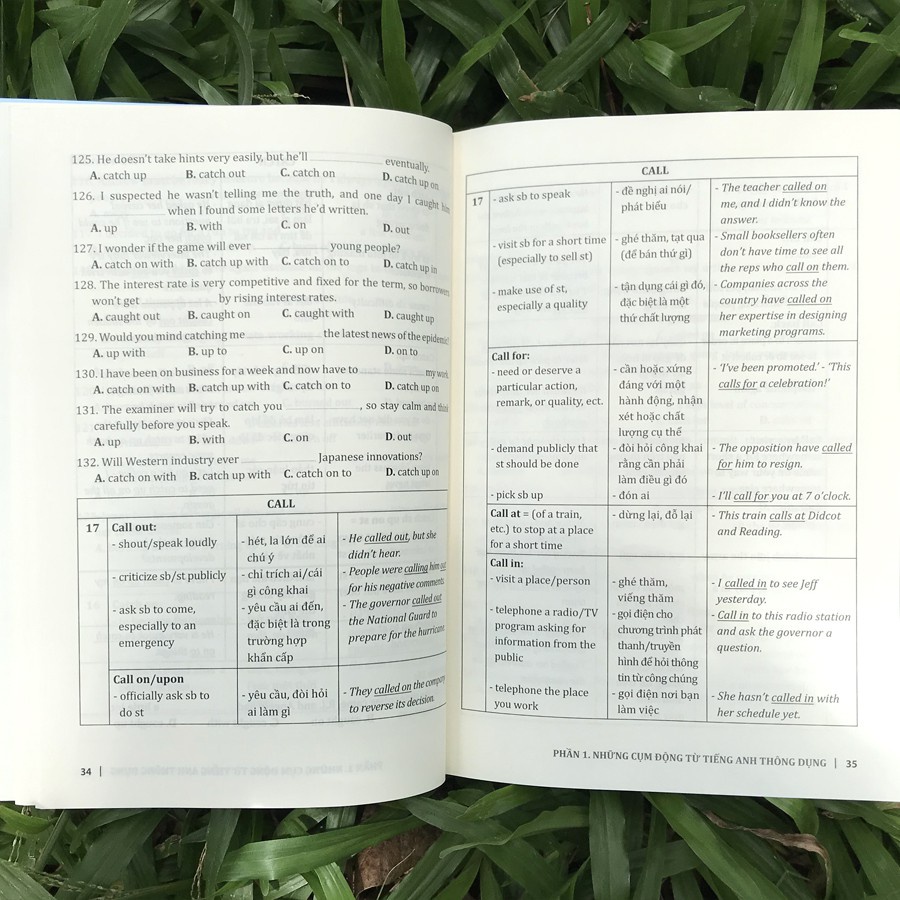 125. He doesn't take hints very easily, but he'll ____________ eventually.
A. catch up B. catch out C. catch on D. catch up on
126. I suspected he wasn't telling me the truth, and one day I caught him
____________ when I found some letters he'd written.
A. up B. with C. on D. out
127. I wonder if the game will ever ____________ young people?
A. catch on with B. catch up with C. catch on to D. catch up in
128. The interest rate is very competitive and fixed for the term, so borrowers
won't get ____________ by rising interest rates.
A. caught out B. caught on C. caught with D. caught up
129. Would you mind catching me ____________ the latest news of the epidemic?
A. up with B. up to C. up on D. on to
130. I have been on business for a week and now have to ____________ my work.
A. catch on with B. catch up with C. catch on to D. catch up on
131. The examiner will try to catch you ____________, so stay calm and think
carefully before you speak.
A. up B. with C. on D. out
132. Will Western industry ever ____________ Japanese innovations?
A. catch on with B. catch up with C. catch on to D. catch up on
CALL
17 Call out:
- shout/speak loudly - hét, la lớn để ai - He called out, but she
chú ý didn't hear.
- criticize sb/st publicly - chỉ trích ai/cái - People were calling him out
gì công khai for his negative comments.
- ask sb to come, - yêu cầu ai đến, - The governor called out
especially to an đặc biệt là trong the National Guard to
emergency trường hợp prepare for the hurricane.
khẩn cấp
Call on/upon
- officially ask sb to - yêu cầu, đòi hỏi - They called on the company
do st ai làm gì to reverse its decision.
34 |
CALL
17 - ask sb to speak - đề nghị ai nói/ - The teacher called on
phát biểu me, and I didn't know the
answer.
- visit sb for a short time - ghé thăm, tạt qua - Small booksellers often
(especially to sell st) (để bán thứ gì) don't have time to see all
the reps who call on them.
- make use of st, - tận dụng cái gì đó, - Companies across the
especially a quality đặc biệt là một country have called on
thứ chất lượng her expertise in designing
marketing programs.
Call for:
- need or deserve a - cần hoặc xứng - 'I've been promoted.' - 'This
particular action, đáng với một calls for a celebration!'
remark, or quality, ect. hành động, nhận
xét hoặc chất
lượng cụ thể
- demand publicly that - đòi hỏi công khai - The opposition have called
st should be done rằng cần phải for him to resign.
làm điều gì đó
- pick sb up - đón ai - I'll call for you at 7 o'clock.
Call at = (of a train, - dừng lại, đỗ lại - This train calls at Didcot
etc.) to stop at a place and Reading.
for a short time
Call in:
- visit a place/person - ghé thăm, - I called in to see Jeff
viếng thăm yesterday.
- telephone a radio/TV - gọi điện cho - Call in to this radio station
program asking for chương trình phát and ask the governor a
information from the thanh/truyền question.
public hình để hỏi thông
tin từ công chúng
- telephone the place - gọi điện nơi bạn - She hasn't called in with
you work làm việc her schedule yet.
PHẦN 1. NHỮNG CỤM ĐỘNG TỪ TIẾNG ANH THÔNG DỤNG | 35